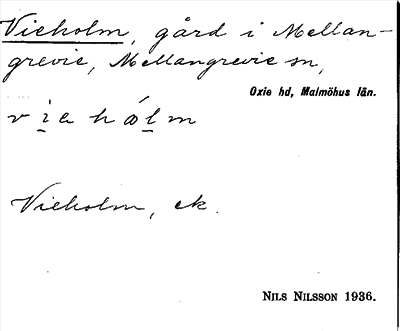 Vieholm, gård i Mellan-
grevie, Mellangrevie sn,
Oxie hd, Malmöhus län.
v i̲ e h ó l̲ m
Vieholm, ek.
NILS NILSSON 1936.